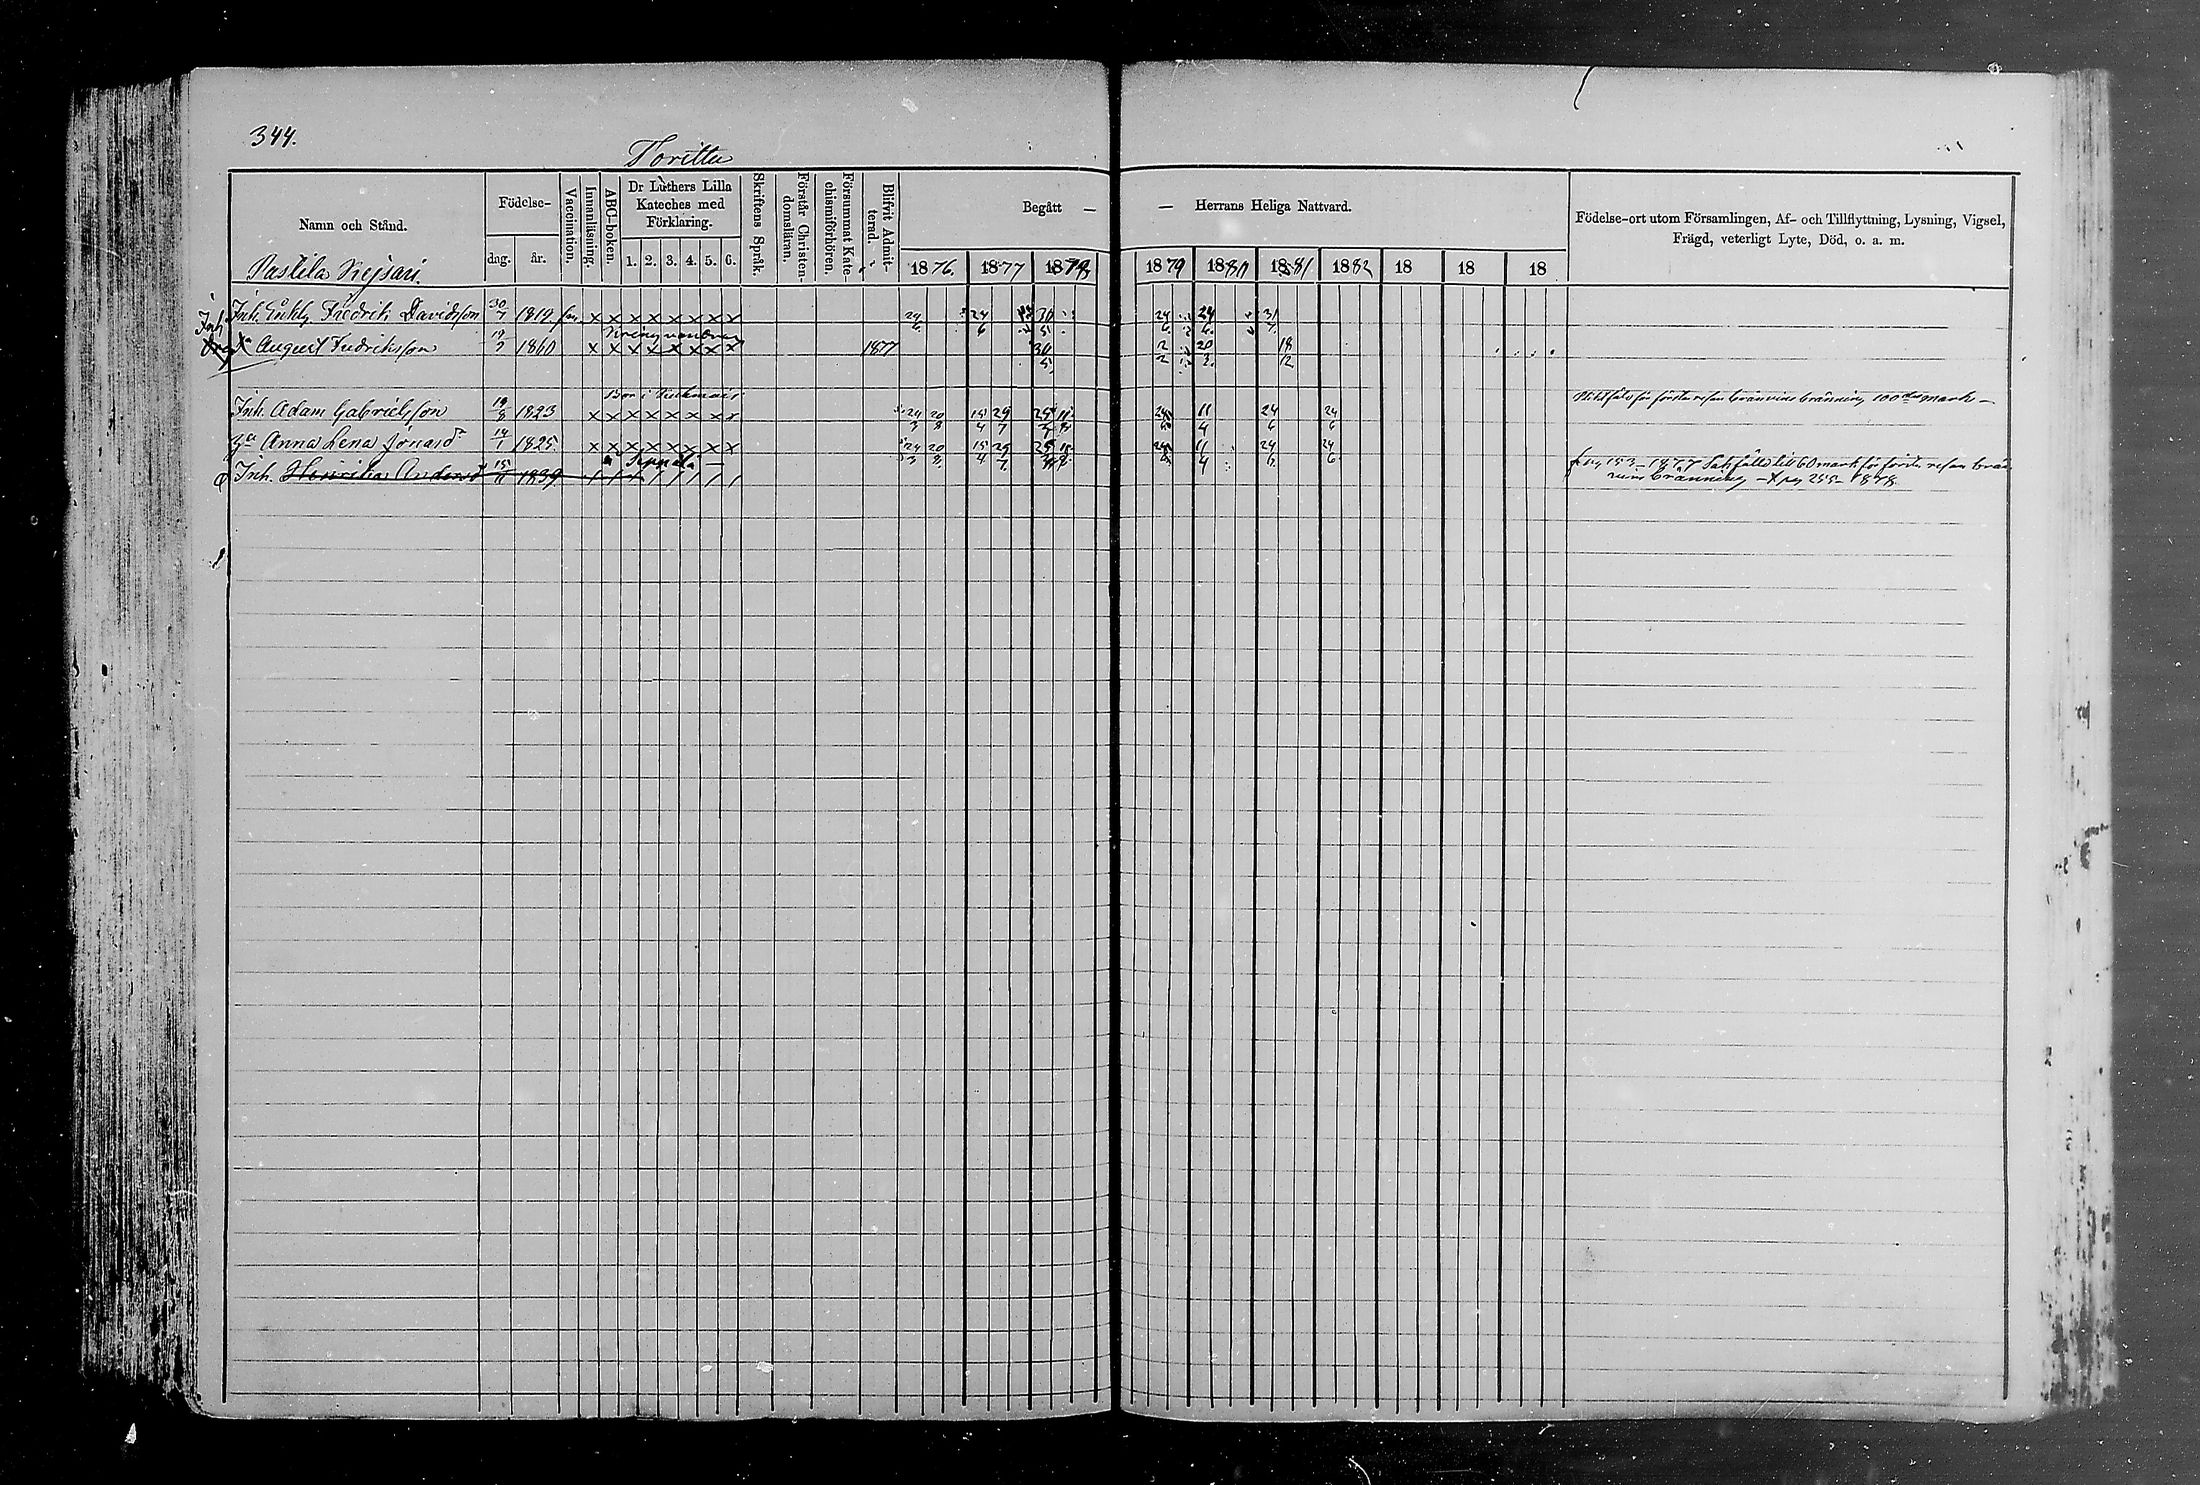 344.
Toritta
Namn och Stånd.
Födelse-
dag. år.
Vaccination.
Innanläsning.
ABC-boken.
Dr Luthers Lilla Kateches med Förklaring.
1. 2. 3. 4. 5. 6.
Skriftens Språk.
Förstår Christendomsläran.
Försummat Katechismiförhören.
Blifvit Admitterad.
Begått — — Herrans Heliga Nattvard.
1876. 1877 1878 1879 1880 1881 1882 18 18 18
Födelse-ort utom Församlingen, Af- och Tillflyttning, Lysning, Vigsel,
Frägd, veterligt Lyte, Död, o. a. m.
Pastila Kejsari.
Inh. Enklg. Fredrik Davidsson 30/7 1819 x x x x x x x x 24/6 24/6 30/5 24/6 24/6 31/7
Inh
August Fredriksson 19/7 1860 x x x x x x x x 1877 30/5 2/2 20/3 18/12
Bor i
Inh. Adam Gabrielsson 19/8 1823 x x x x x x x x 24/3 20/8 15/4 29/7 11/4 24/6 24/6
för första resan brännvins bränning 100 mark —
Anna Lena Jonasdr 14/1 1825 x x x x x x x x 24/3 20/8 15/4 29/7 11/4 24/6 24/6
Seppälä —
Inh. Henrika Andersdr 15/11 1839 / / / / / / / /
fr pag 153 – 1877 Sakfälld till 60 mark för första resan brän
vins bränning – t pag 255 – 1878